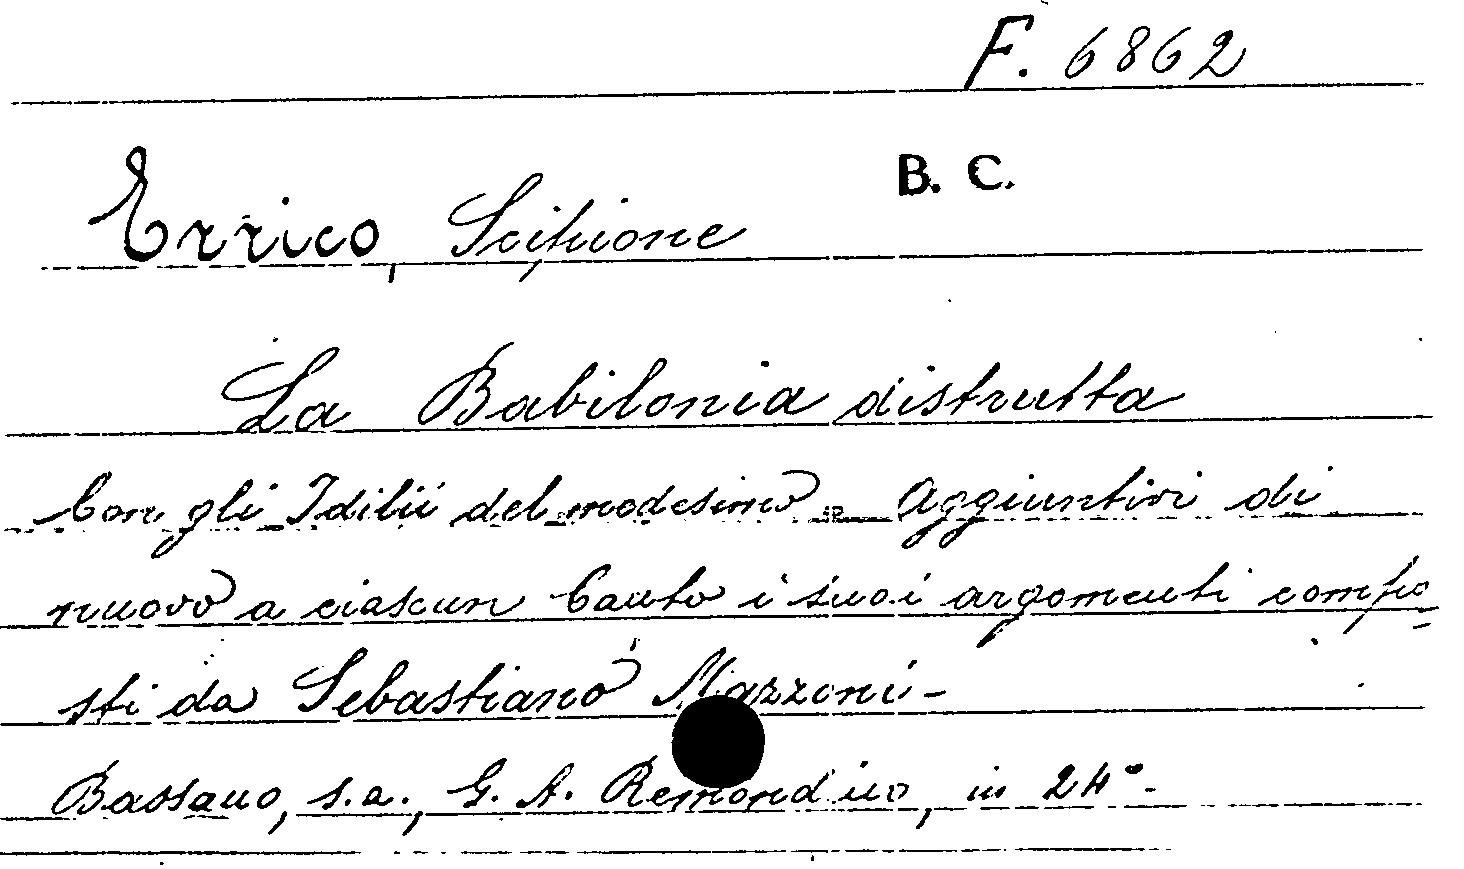 F. 6862
B. C.
Errico, Scipione
La Babilonia distrutta
Con gli Idilii del modesimo. Aggiuntivi di
nuovo a ciascun Canto i suoi argomenti compo-
sti da Sebastiano Mazzoni-
Bassano, s.a., G. A. Remondino, in 24°-